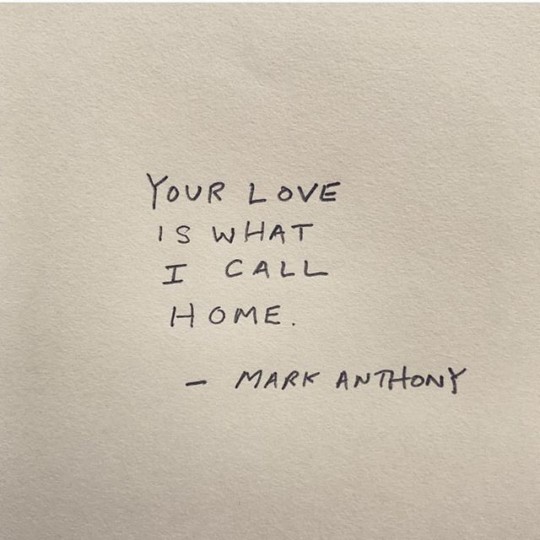 YOUR LOVE
IS WHAT
I CALL
HOME.
- MARK ANTHONY